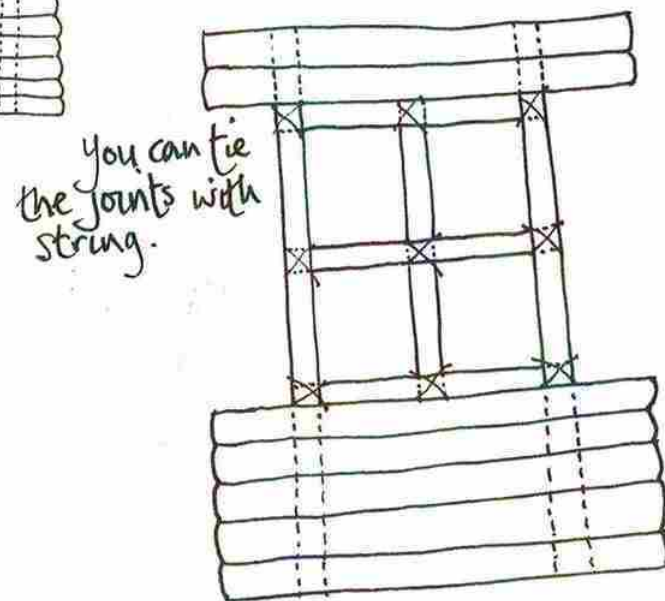 you can tie
the joints with
string.